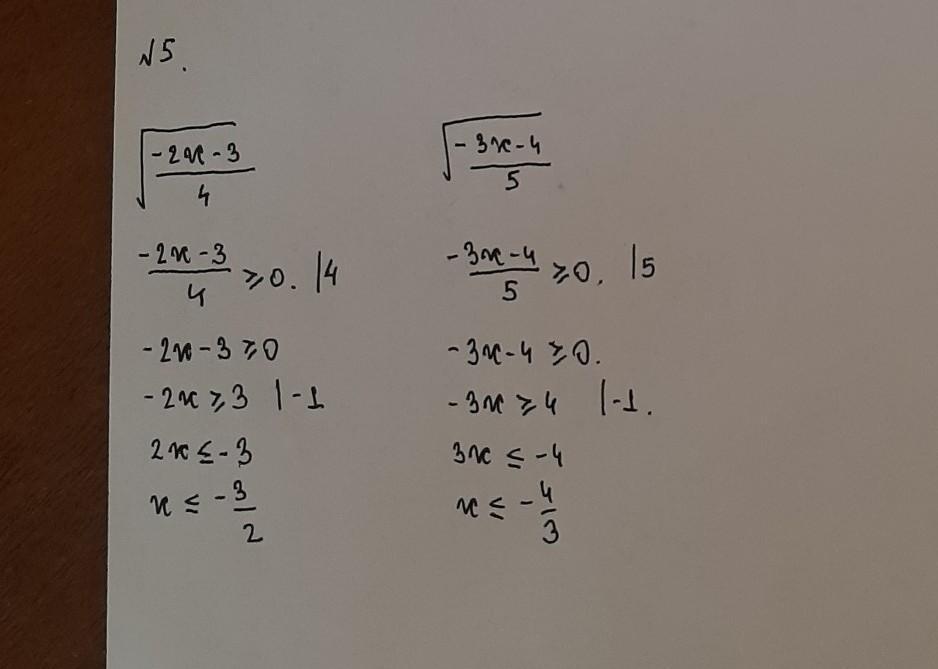 №5.
√(-2x-3)/4
(-2x-3)/4 ≥0. |4
-2x-3≥0
-2x≥3 |-1
2x≤-3
x≤-3/2
√(-3x-4)/5
(-3x-4)/5 ≥0. |5
-3x-4≥0.
-3x≥4 |-1.
3x≤-4
x≤-4/3